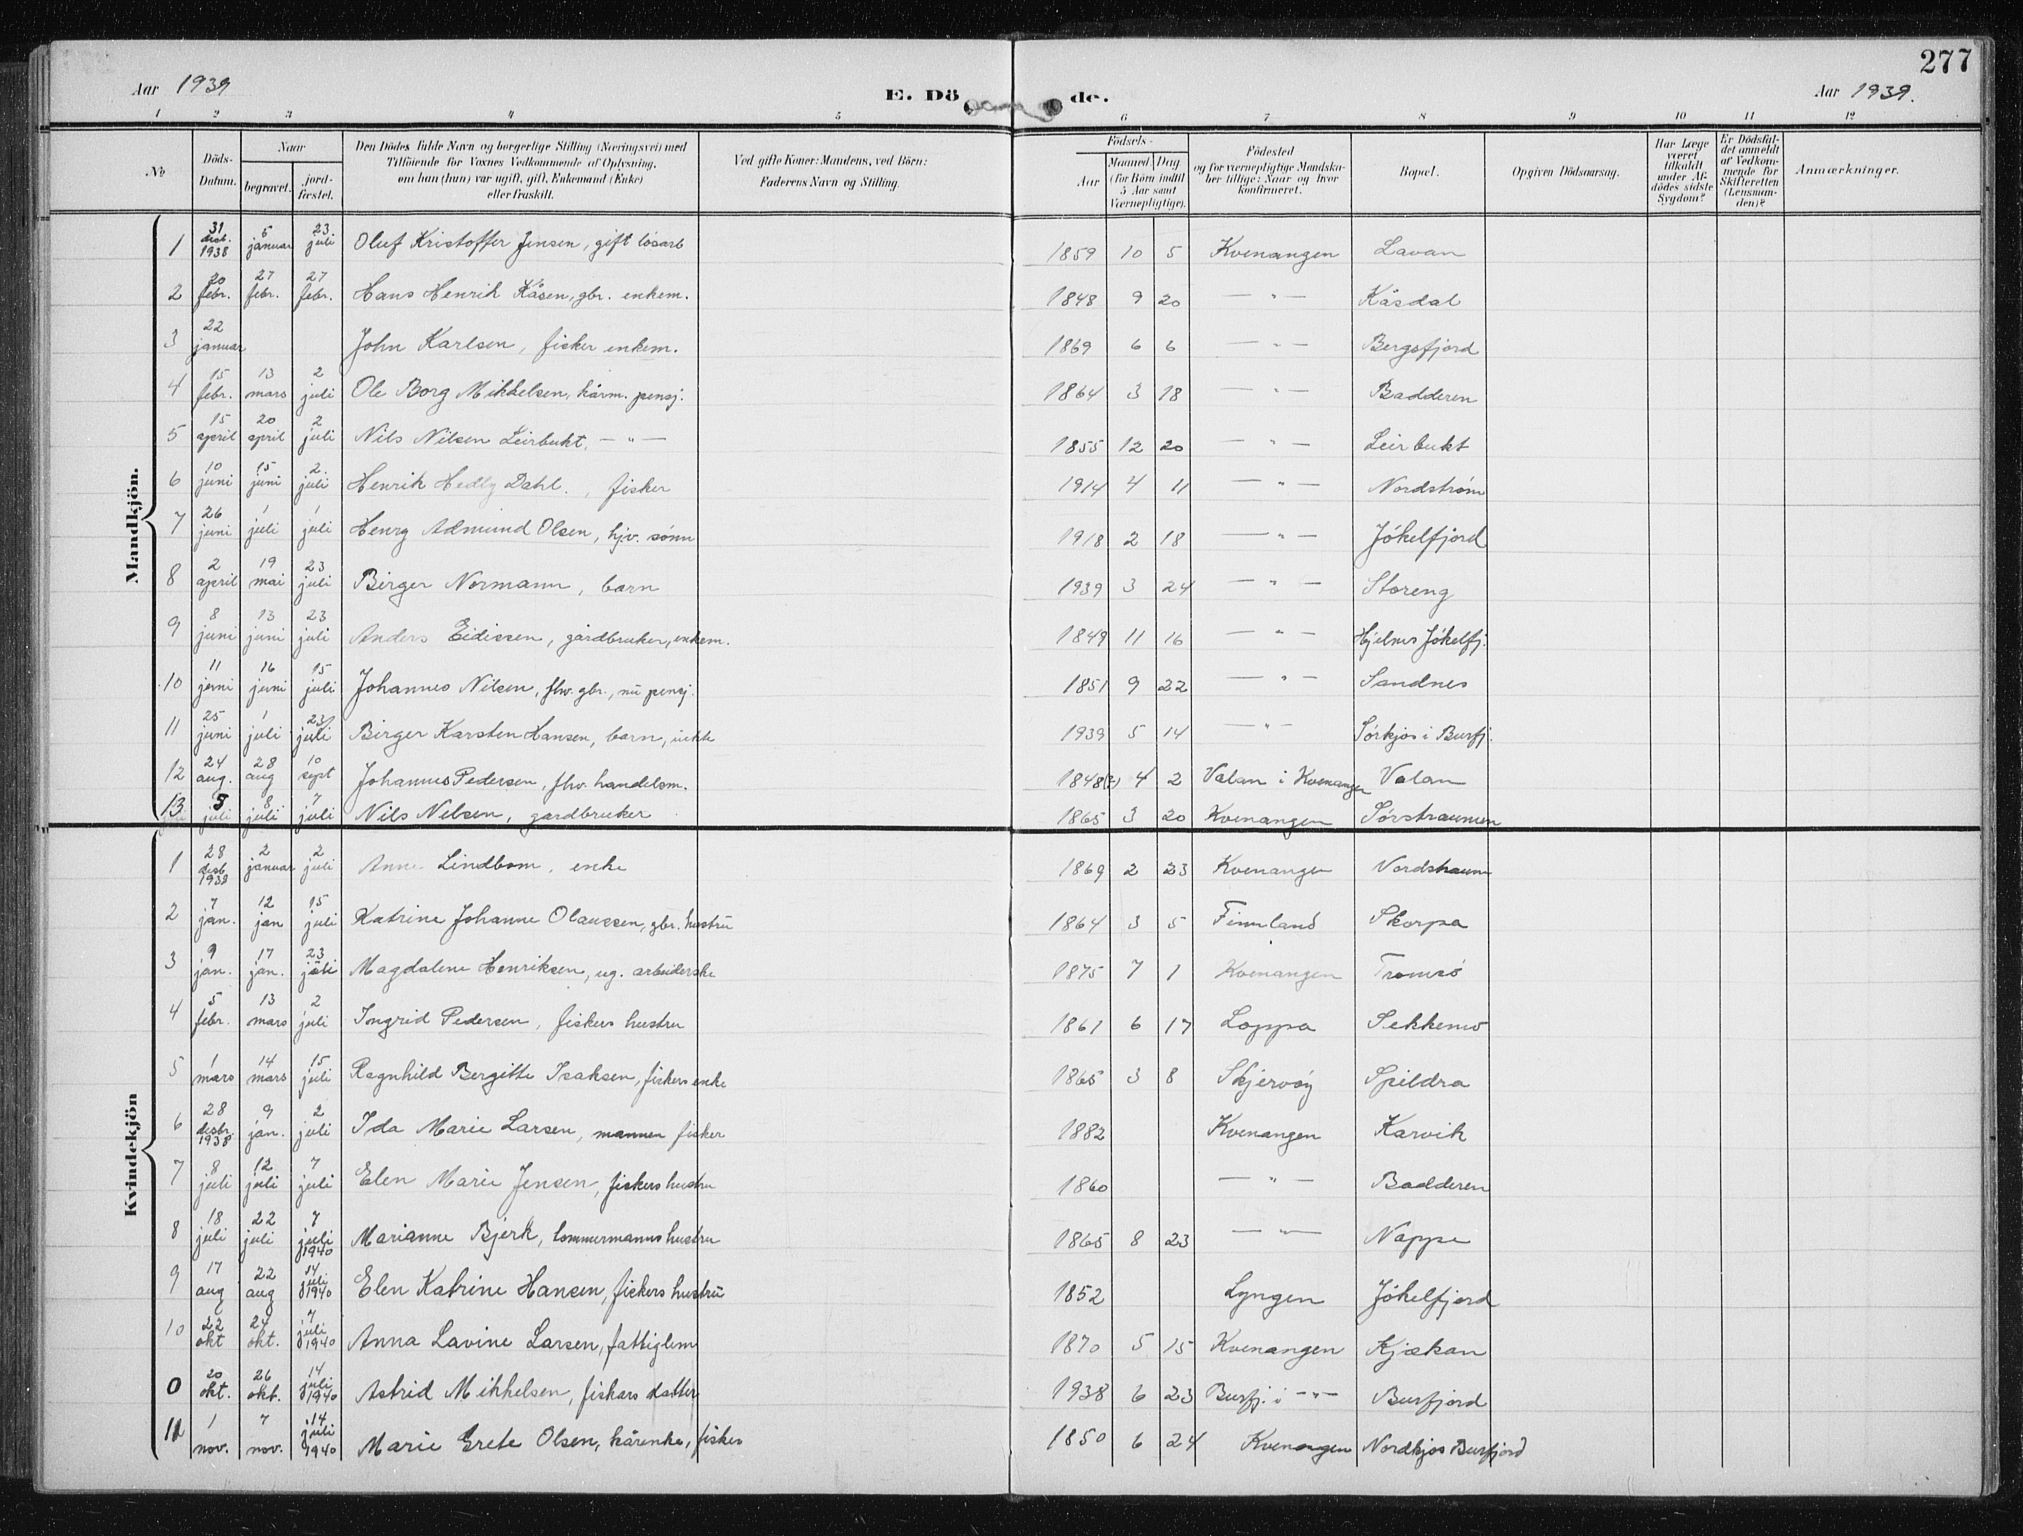 277
Aar 1939 E. Dö de. Aar 1939.
1 2 3 4 5 6 7 8 9 10 11 12
No Döds-Datum. Naar begravet. jordfæstet. Den Dödes fulde Navn og borgerlige Stilling (Næringsvei) med Tilföiende for Voxnes Vedkommende af Oplysning, om han (hun) var ugift, gift, Enkemand (Enke) eller fraskilt. Ved gifte Koner: Mandens, ved Börn: Faderens Navn og Stilling. Födsels- Aar Maaned Dag (for Börn indtil 5 Aar samt Værnepligtige). Födested og for værnepligtige Mandskaber tillige: Naar og hvor konfirmeret. Bopæl. Opgiven Dödsaarsag. Har Læge været tilkaldt under Afdödes sidste Sygdom? Er Dödsfaldet anmeldt af Vedkommende for Skifteretten (Lensmanden)? Anmærkninger.
Mandkjön.
1 31 desb. 1938 5 januar 23 juli Oluf Kristoffer Jensen, gift løsarb 1859 10 5 Kvenangen Lavan
2 20 febr. 27 febr. 27 febr. Hans Henrik Kåsen, gbr. enkem. 1848 9 20 — " — Kåsdal
3 22 januar John Karlsen, fisker enkem. 1869 6 6 — " — Bergsfjord
4 15 febr. 13 mars 2 juli Ole Borg Mikkelsen, kårm. pensj. 1864 3 18 — " — Badderen
5 15 april 20 april 2 juli Nils Nilsen Leirbukt, — " — 1855 12 20 — " — Leirbukt
6 10 juni 15 juni 2. juli Henrik Hedly Dahl., fisker 1914 4 11 — " — Nordstrøm
7 26 juni 1 juli 1 juli Henry Admund Olsen, hjv. sønn 1918 2 18 — " — Jökelfjord
8 2 april 19 mai 23 juli Birger Normann, barn 1939 3 24 — " — Storeng
9 8 juni 13 juni 23 juli Anders Eidissen, gårdbruker, enkem. 1849 11 16 — " — Hjelnes Jökelfj.
10 11 juni 16 juni 15 juli Johannes Nilsen, fhv. gbr., nu pensj. 1851 9 22 — " — Sandnes
11 25 juni 1 juli 23 juli Birger Karsten Hansen, barn, uekte 1939 5 14 — " Sørkjos i Burfj.
12 24 aug. 28 aug 10 sept Johannes Pedersen, fhv. handelsm. 1848(?) 4 2 Valan i Kvenangen Valan
13 5 juli 8 juli 7 juli Nils Nilsen, gardbruker 1865 3 20 Kvenangen Sørstraumen
Kvindekjön
1 28 desb 1938 2 januar 2 juli Anne Lindbom, enke 1869 2 23 Kvenangen Nordstraum
2 7 jan. 12 jan 15 juli Katrine Johanne Olaussen, gbr. hustru 1864 3 5 Finnland Skorpa
3 9 jan. 17 jan. 23 juli Magdalene Henriksen, ug. arbeiderske 1875 7 1 Kvenangen Tromsö
4 5 febr. 13 mars 2 juli Ingrid Pedersen, fiskers hustru 1861 6 17 Loppa Sekkemo
5 1 mars 14 mars 15 juli Ragnhild Bergitte Isaksen, fiskers enke 1865 3 8 Skjervöy Spildra
6 28 desbr. 1938 9 jan. 2 juli Ida Marie Larsen, mannen fisker 1882 Kvenangen Karvik
7 8 juli 12 juli 7 juli Elen Marie Jensen, fiskers hustru 1860 — " — Badderen
8 18 juli 22 juli 7 juli 1940 Marianne Bjerk, tommermanns hustru 1865 8 23 — " — Nappe
9 17 aug 22 aug 14 juli 1940 Elen Katrine Hansen, fiskers hustru 1852 Lyngen Jökelfjord
10 22 okt 24 okt. 7 juli 1940 Anna Lavine Larsen, fattiglem 1870 5 15 Kvenangen Kjækan
0 20 okt. 26 okt. 14 juli 1940 Astrid Mikkelsen, fiskers datter 1938 6 23 Burfj. i — " — Burfjord
11 1 nov. 7 nov. 14 juli 1940 Marie Grete Olsen, kårenke, fisker 1850 6 24 Kvenangen Nordkjos Burfjord